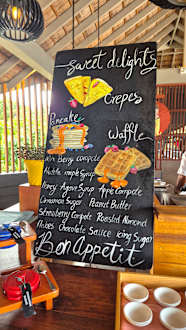 Sweet delights
Crepes
Pancake
Waffle
Berry compote
maple Syrup
Honey Agave Syrup Apple Compote
Cinnamon Sugar Peanut Butter
Strawberry Compote Roasted Almond
Flakes Chocolate Sauce Icing Sugar
Bon Appetit